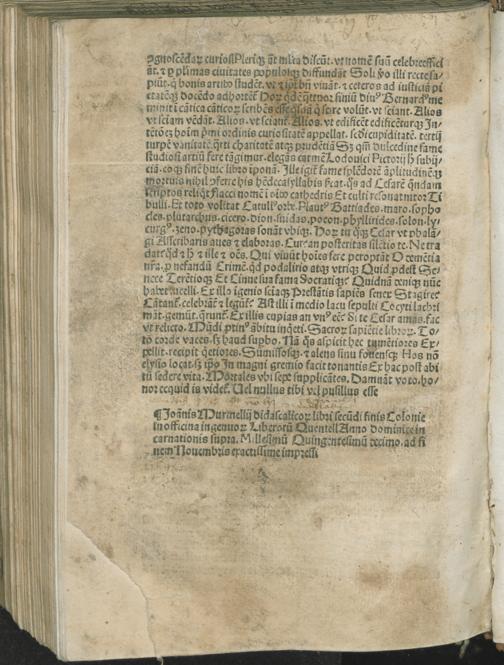 ꝓgnoscēdaꝝ curiosi Pleriqꝫ āt mĺta discūt. vt nomē suū celebre effici
āt. ⁊ ꝑ plimas ciuitates populosqꝫ diffundāt Soli ꝟo illi recte sa-
piūt. q̄ bonis artibꝰ studēt. vt ⁊ ip̄i bn̄ viuāt. ⁊ ceteros ad iusticiā pi
etatēqꝫ docēdo adhortēt̄ Hoꝝ q̄dē q̄ttuor finiū diuꝰ Bernardꝰ me
minit ī cātica cāticoꝝ scribēs esse q̄sdā q̄ scire volūt. vt sciant. Alios
vt sciam vēdāt. Alios. vt sciant̄. Alios. vt edificēt edificēturqꝫ In-
tētōeꝫ hoīm p̄mi ordinis curiositatē appellat. scd̄i cupiditatē. tertij
turpē vanitatē q̄rti charitatē atqꝫ prudētiā Sꝫ qm̄ dulcedine fame
studiosi artiū fere tāgimur. elegās carmē Lodouici Pictorij ħ subij
ciā. eoqꝫ finē huic libro ponā. Ille igit̄ fame splēdorē āplitudinēqꝫ
mortuis nihil ꝓferre his hēdecasyllabis
scriptos reliq̄t flacci nomē ī oēꝫ cathedris Et culti resonat nitor Ti
bulli. Et toto volitat Catullꝰ orbe. Plautꝰ Battiades. maro. sopho
cles. plutarchus. cicero. dion. suidas. phyllirides. solon. ly
curgꝰ. zeno. pythagoras sonāt vbiqꝫ. Hoꝝ tu qꝫ Cesar vt phalā-
gi Asscribaris aues ⁊ elaboras. Cur an posteritas silētio te. Ne tra
dat Qui viuūt hoīes fere peroptāt O demētia
nr̄a. ꝓ nefandū Crimē. qd podalirio atqꝫ vtriqꝫ Quid ꝓdest Se-
nece Terētioqꝫ Et Cinne sua fama Socratiqꝫ Quid nā deniqꝫ nūc
habet Ex illo igenio sciaqꝫ Prestātis sapiēs senex Stagires
Cātant̄. celebrāt̄ ⁊ legūt̄. Ast illi ī medio lacu sepulti Cocyti lachri
māt. gemūt. q̄runt̄. Ex illis cupias an vnꝰ Si te Cesar amas. fac
vt relicto. Mūdi ꝓtinꝰ ābitu inq̄eti. Sacroꝝ sapiētie libroꝝ. To-
to corde vaces. sꝫ haud supbo. Nā q̄s aspicit hec tumētiores Ex-
pellit. recipit q̄etiores. Sumissosqꝫ. ⁊ alens sinu fouensqꝫ Hos nō
elysio locat. sꝫ ip̄o In magni gremio facit tonantis Ex hac post abi
tū sedere vita. Mortales vbi sepe supplicātes. Damnāt voto. ho-
nor ecquid is videt̄. Uel nullus tibi vel pusillus esse
¶ Joānis Murmellij didascalicoꝝ libri secūdi finis Colonie
in officina ingenuoꝝ Liberorū Quentell Anno dominice in
carnationis supra. Millesimū Quingentesimū decimo. ad fi
nem Nouembris exactissime impressi